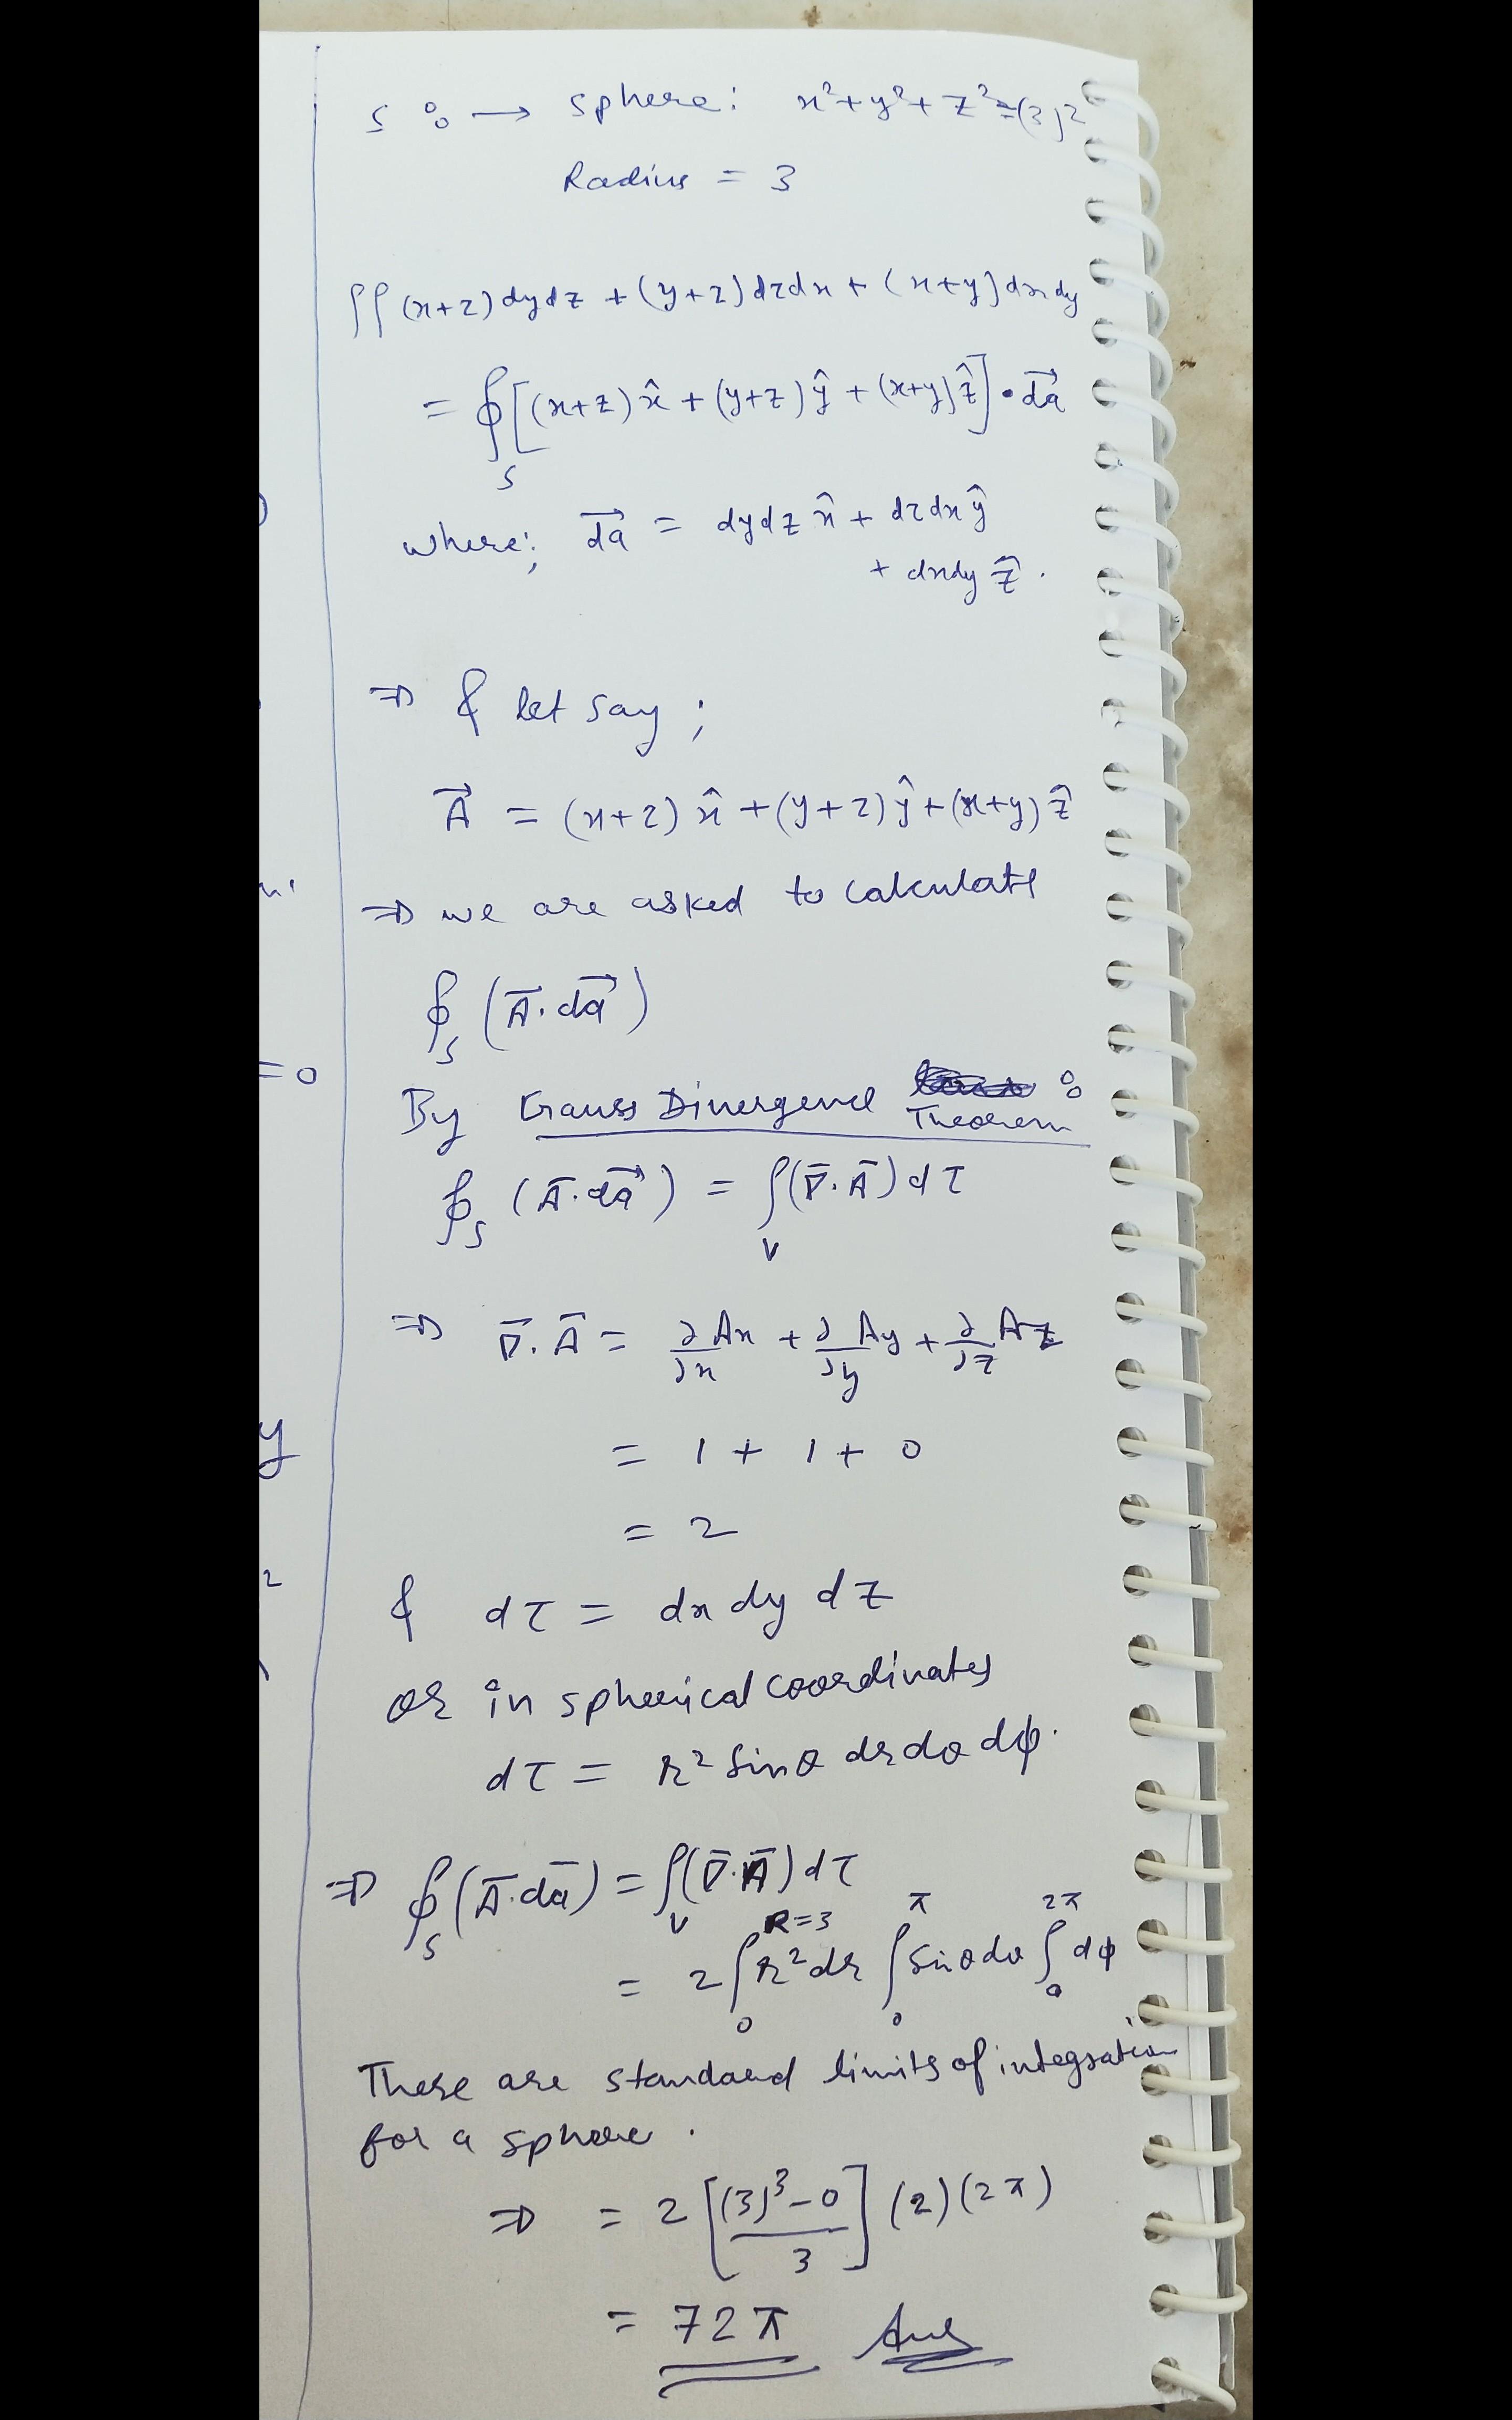 S : → Sphere: x²+y²+z²=(3)²
Radius = 3
∫∫ (x+z) dydz + (y+z) dzdx + (x+y) dxdy
= ∮[(x+z)x̂ + (y+z)ŷ + (x+y)ẑ]•da⃗
S
where; da⃗ = dydz x̂ + dzdx ŷ
+ dxdy ẑ.
⇒ & let say ;
A⃗ = (x+z) x̂ + (y+z) ŷ + (x+y) ẑ
⇒ we are asked to calculate
∮S (A̅.da⃗)
By Gauss Divergence Theorem :
∮S (A̅.da⃗) = ∫V (∇̅.A̅) dτ
⇒ ∇̅.A̅ = ∂/∂x Ax + ∂/∂y Ay + ∂/∂z Az
= 1 + 1 + 0
= 2
& dτ = dx dy dz
or in spherical coordinates
dτ = r² sinθ dr dθ dϕ.
⇒ ∮S (A̅.da̅) = ∫V (∇̅.A̅) dτ
= 2 ∫₀^{R=3} r² dr ∫₀^π sinθ dθ ∫₀^{2π} dϕ
These are standard limits of integration
for a sphere.
⇒ = 2 [(3)³-0 / 3] (2)(2π)
= 72π Ans
= 0
y
2